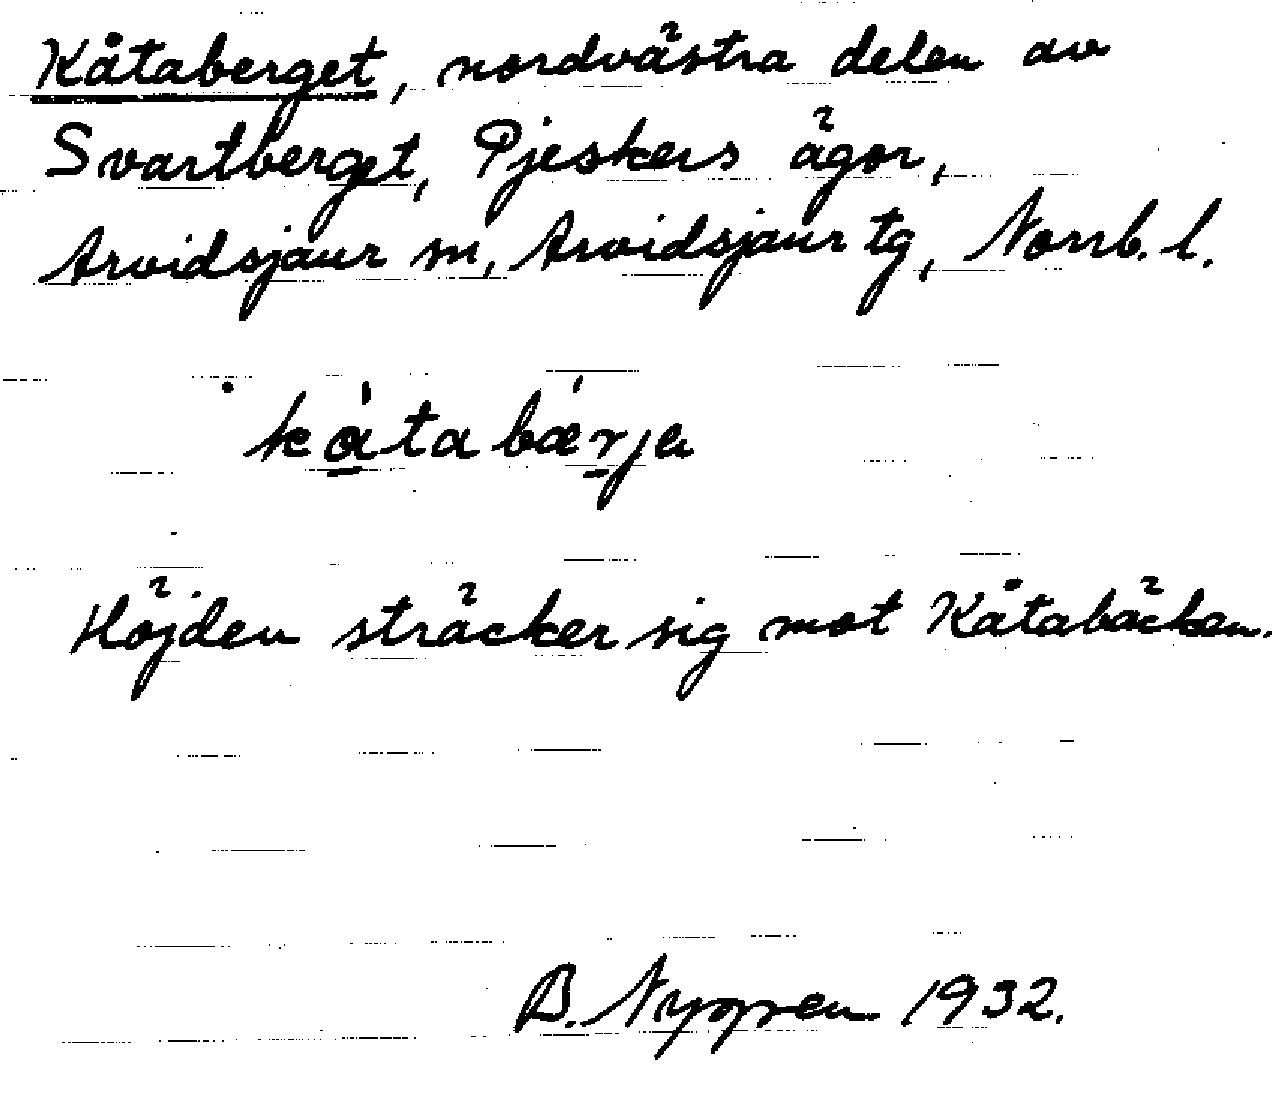 Kåtaberget, nordvästra delen av
Svartberget, Pjeskers ägor,
Arvidsjaur sn, Arvidsjaur tg, Norrb. l.
˙kátabǽrja
Höjden sträcker sig mot Kåtabäcken.
B. Nygren 1932.